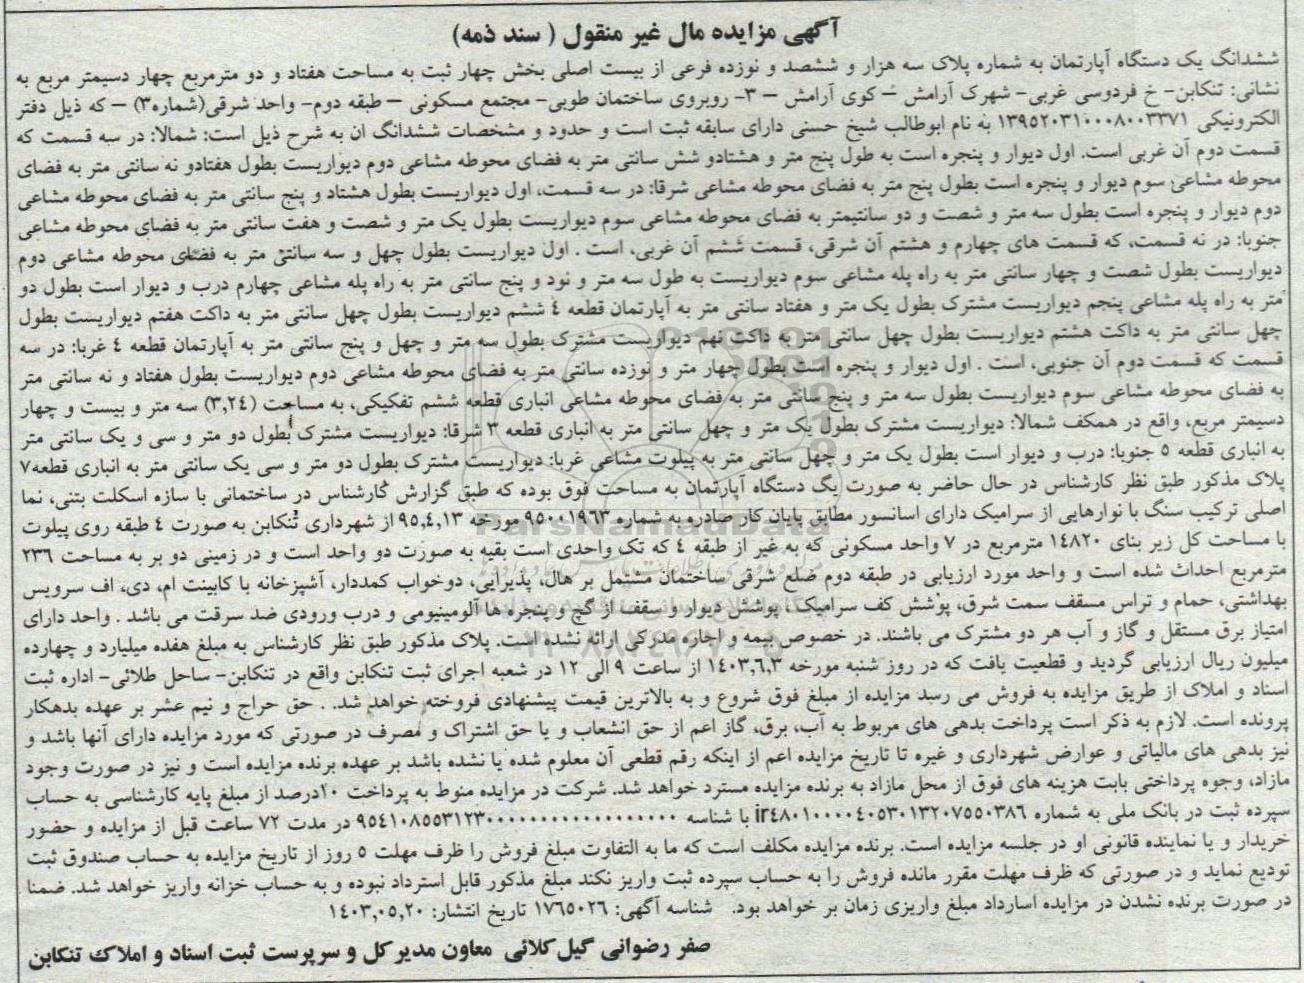 آگهی مزایده مال غیر منقول ( سند ذمه)
ششدانگ یک دستگاه آپارتمان به شماره پلاک سه هزار و ششصد و نوزده فرعی از بیست اصلی بخش چهار ثبت به مساحت هفتاد و دو مترمربع چهار دسیمتر مربع به
نشانی: تنکابن- خ فردوسی غربی- شهرک آرامش – کوی آرامش – ۳- روبروی ساختمان طوبی- مجتمع مسکونی – طبقه دوم- واحد شرقی(شماره۳) – که ذیل دفتر
الکترونیکی ۱۳۹۵۲۰۳۱۰۰۰۸۰۰۳۳۷۱ به نام ابوطالب شیخ حسنی دارای سابقه ثبت است و حدود و مشخصات ششدانگ ان به شرح ذیل است: شمالا: در سه قسمت که
قسمت دوم آن غربی است. اول دیوار و پنجره است به طول پنج متر و هشتادو شش سانتی متر به فضای محوطه مشاعی دوم دیواریست بطول هفتادو نه سانتی متر به فضای
محوطه مشاعی سوم دیوار و پنجره است بطول پنج متر به فضای محوطه مشاعی شرقا: در سه قسمت، اول دیواریست بطول هشتاد و پنج سانتی متر به فضای محوطه مشاعی
دوم دیوار و پنجره است بطول سه متر و شصت و دو سانتیمتر به فضای محوطه مشاعی سوم دیواریست بطول یک متر و شصت و هفت سانتی متر به فضای محوطه مشاعی
جنوبا: در نه قسمت، که قسمت های چهارم و هشتم آن شرقی، قسمت ششم آن غربی، است . اول دیواریست بطول چهل و سه سانتی متر به فضای محوطه مشاعی دوم
دیواریست بطول شصت و چهار سانتی متر به راه پله مشاعی سوم دیواریست به طول سه متر و نود و پنج سانتی متر به راه پله مشاعی چهارم درب و دیوار است بطول دو
متر به راه پله مشاعی پنجم دیواریست مشترک بطول یک متر و هفتاد سانتی متر به آپارتمان قطعه ٤ ششم دیواریست بطول چهل سانتی متر به داکت هفتم دیواریست بطول
چهل سانتی متر به داکت هشتم دیواریست بطول چهل سانتی متر به داکت نهم دیواریست مشترک بطول سه متر و چهل و پنج سانتی متر به آپارتمان قطعه ٤ غربا: در سه
قسمت که قسمت دوم آن جنوبی، است . اول دیوار و پنجره است بطول چهار متر و نوزده سانتی متر به فضای محوطه مشاعی دوم دیواریست بطول هفتاد و نه سانتی متر
به فضای محوطه مشاعی سوم دیواریست بطول سه متر و پنج سانتی متر به فضای محوطه مشاعی انباری قطعه ششم تفکیکی، به مساحت (۳,۲٤) سه متر و بیست و چهار
دسیمتر مربع، واقع در همکف شمالا: دیواریست مشترک بطول یک متر و چهل سانتی متر به انباری قطعه ۳ شرقا: دیواریست مشترک بطول دو متر و سی و یک سانتی متر
به انباری قطعه ۵ جنوبا: درب و دیوار است بطول یک متر و چهل سانتی متر به پیلوت مشاعی غربا: دیواریست مشترک بطول دو متر و سی یک سانتی متر به انباری قطعه۷
پلاک مذکور طبق نظر کارشناس در حال حاضر به صورت یک دستگاه آپارتمان به مساحت فوق بوده که طبق گزارش کارشناس در ساختمانی با سازه اسکلت بتنی، نما
اصلی ترکیب سنگ با نوارهایی از سرامیک دارای اسانسور مطابق پایان کار صادره به شماره ۹۵۰۰۱۹۶۳ مورخه ۹۵,٤,۱۳ از شهرداری تنکابن به صورت ٤ طبقه روی پیلوت
با مساحت کل زیر بنای ۱٤۸۲۰ مترمربع در ۷ واحد مسکونی که به غیر از طبقه ٤ که تک واحدی است بقیه به صورت دو واحد است و در زمینی دو بر به مساحت ۲۳۶
مترمربع احداث شده است و واحد مورد ارزیابی در طبقه دوم ضلع شرقی ساختمان مشتمل بر هال، پذیرایی، دوخواب کمددار، آشپزخانه با کابینت ام، دی، اف سرویس
بهداشتی، حمام و تراس مسقف سمت شرق، پوشش کف سرامیک، پوشش دیوار و سقف از گچ و پنجره ها آلومینیومی و درب ورودی ضد سرقت می باشد . واحد دارای
امتیاز برق مستقل و گاز و آب هر دو مشترک می باشند. در خصوص بیمه و اجاره مدرکی ارائه نشده است. پلاک مذکور طبق نظر کارشناس به مبلغ هفده میلیارد و چهارده
میلیون ریال ارزیابی گردید و قطعیت یافت که در روز شنبه مورخه ۱٤۰۳,۶,۳ از ساعت ۹ الی ۱۲ در شعبه اجرای ثبت تنکابن واقع در تنکابن- ساحل طلائی- اداره ثبت
اسناد و املاک از طریق مزایده به فروش می رسد مزایده از مبلغ فوق شروع و به بالاترین قیمت پیشنهادی فروخته خواهد شد. . حق حراج و نیم عشر بر عهده بدهکار
پرونده است. لازم به ذکر است پرداخت بدهی های مربوط به آب، برق، گاز اعم از حق انشعاب و یا حق اشتراک و مصرف در صورتی که مورد مزایده دارای آنها باشد و
نیز بدهی های مالیاتی و عوارض شهرداری و غیره تا تاریخ مزایده اعم از اینکه رقم قطعی آن معلوم شده یا نشده باشد بر عهده برنده مزایده است و نیز در صورت وجود
مازاد، وجوه پرداختی بابت هزینه های فوق از محل مازاد به برنده مزایده مسترد خواهد شد. شرکت در مزایده منوط به پرداخت ۱۰درصد از مبلغ پایه کارشناسی به حساب
سپرده ثبت در بانک ملی به شماره ir٤۸۰۱۰۰۰۰٤۰۵۳۰۱۳۲۰۷۵۵۰۳۸۶ با شناسه در مدت ۷۲ ساعت قبل از مزایده و حضور
خریدار و یا نماینده قانونی او در جلسه مزایده است. برنده مزایده مکلف است که ما به التفاوت مبلغ فروش را ظرف مهلت ۵ روز از تاریخ مزایده به حساب صندوق ثبت
تودیع نماید و در صورتی که ظرف مهلت مقرر مانده فروش را به حساب سپرده ثبت واریز نکند مبلغ مذکور قابل استرداد نبوده و به حساب خزانه واریز خواهد شد. ضمنا
در صورت برنده نشدن در مزایده اسارداد مبلغ واریزی زمان بر خواهد بود. شناسه آگهی: ۱۷۶۵۰۲۶ تاریخ انتشار: ۱٤۰۳,۰۵,۲۰
صفر رضوانی گیل کلائی معاون مدیر کل و سرپرست ثبت اسناد و املاک تنکابن
ParsNamadData